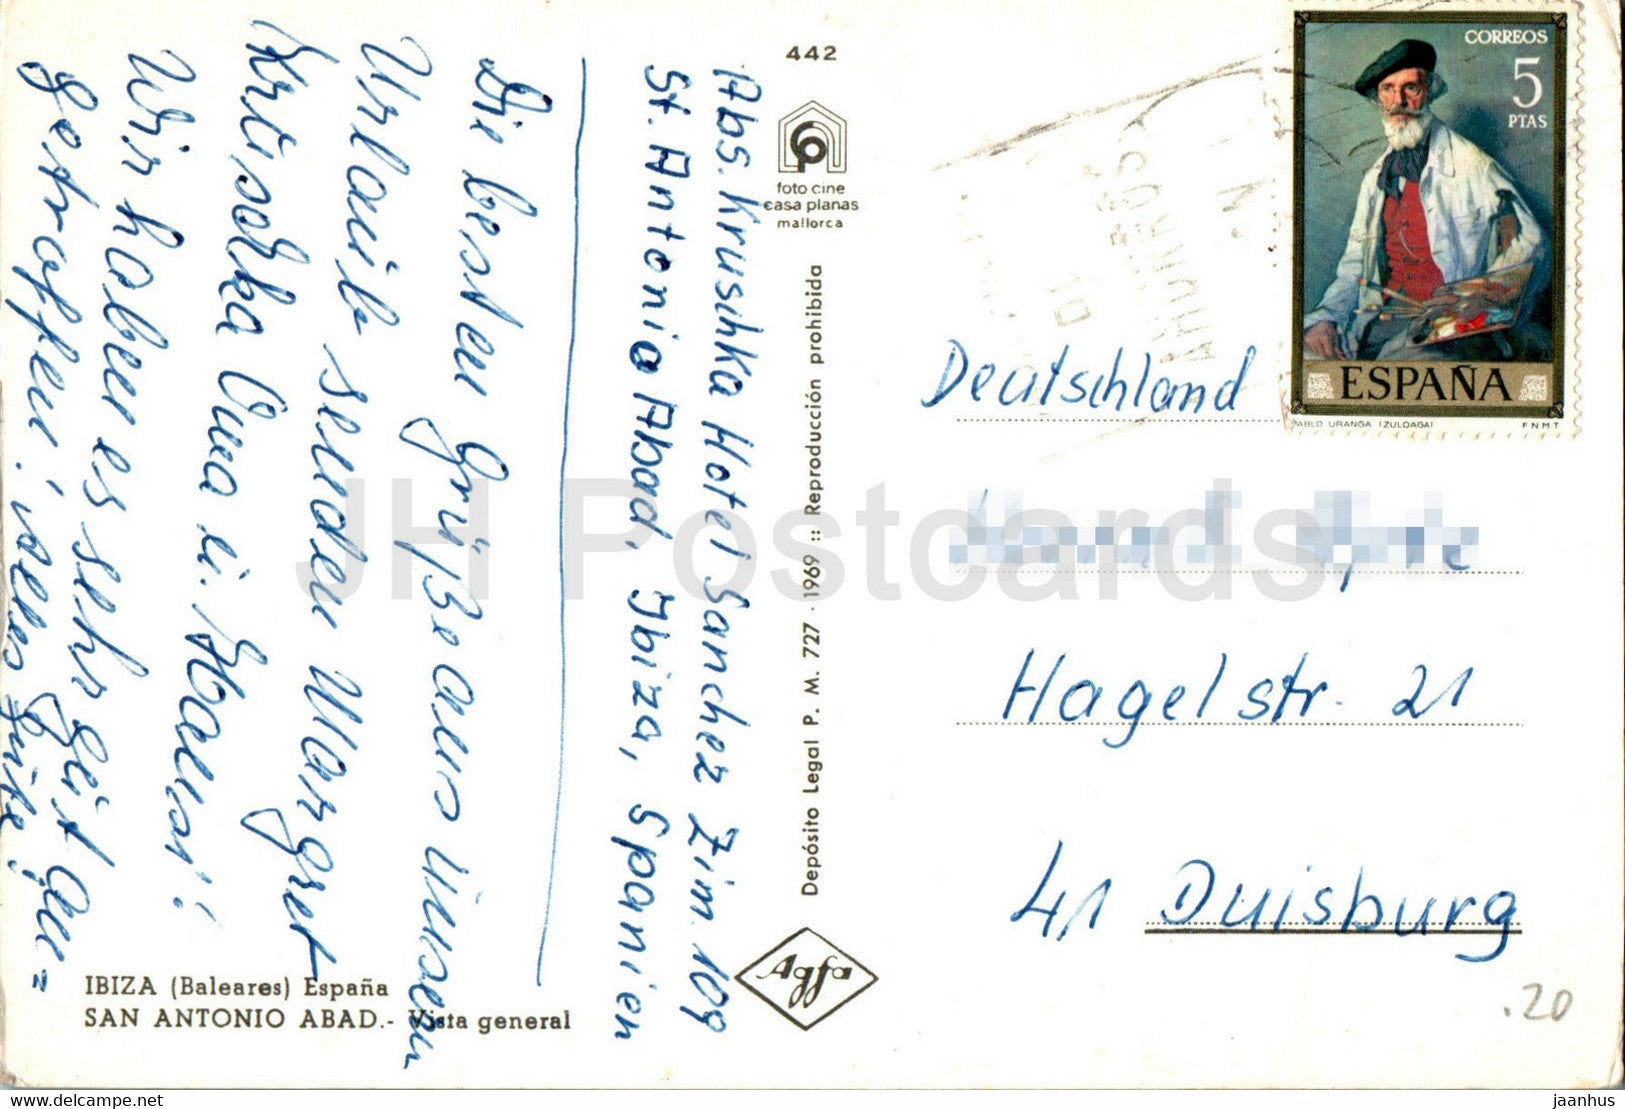 442
foto cine
casa planas
mallorca
Abs. Kruschka Hotel Sanchez Zim. 109
St. Antonio Abad, Ibiza, Spanien
Die besten Grüße aus unserem
Urlaub senden Margret
Kruschka Oma u.
Wir haben es sehr gut an=
getroffen. alles gute
Depósito Legal P. M. 727 - 1969 :: Reproducción prohibida
Agfa
IBIZA (Baleares) España
SAN ANTONIO ABAD.- Vista general
CORREOS
5
PTAS
ESPAÑA
PABLO URANGA (ZULOAGA)
F N M T
Deutschland
Hagelstr. 21
41 Duisburg
.20
JH Postcards
www.delcampe.net
jaanhus